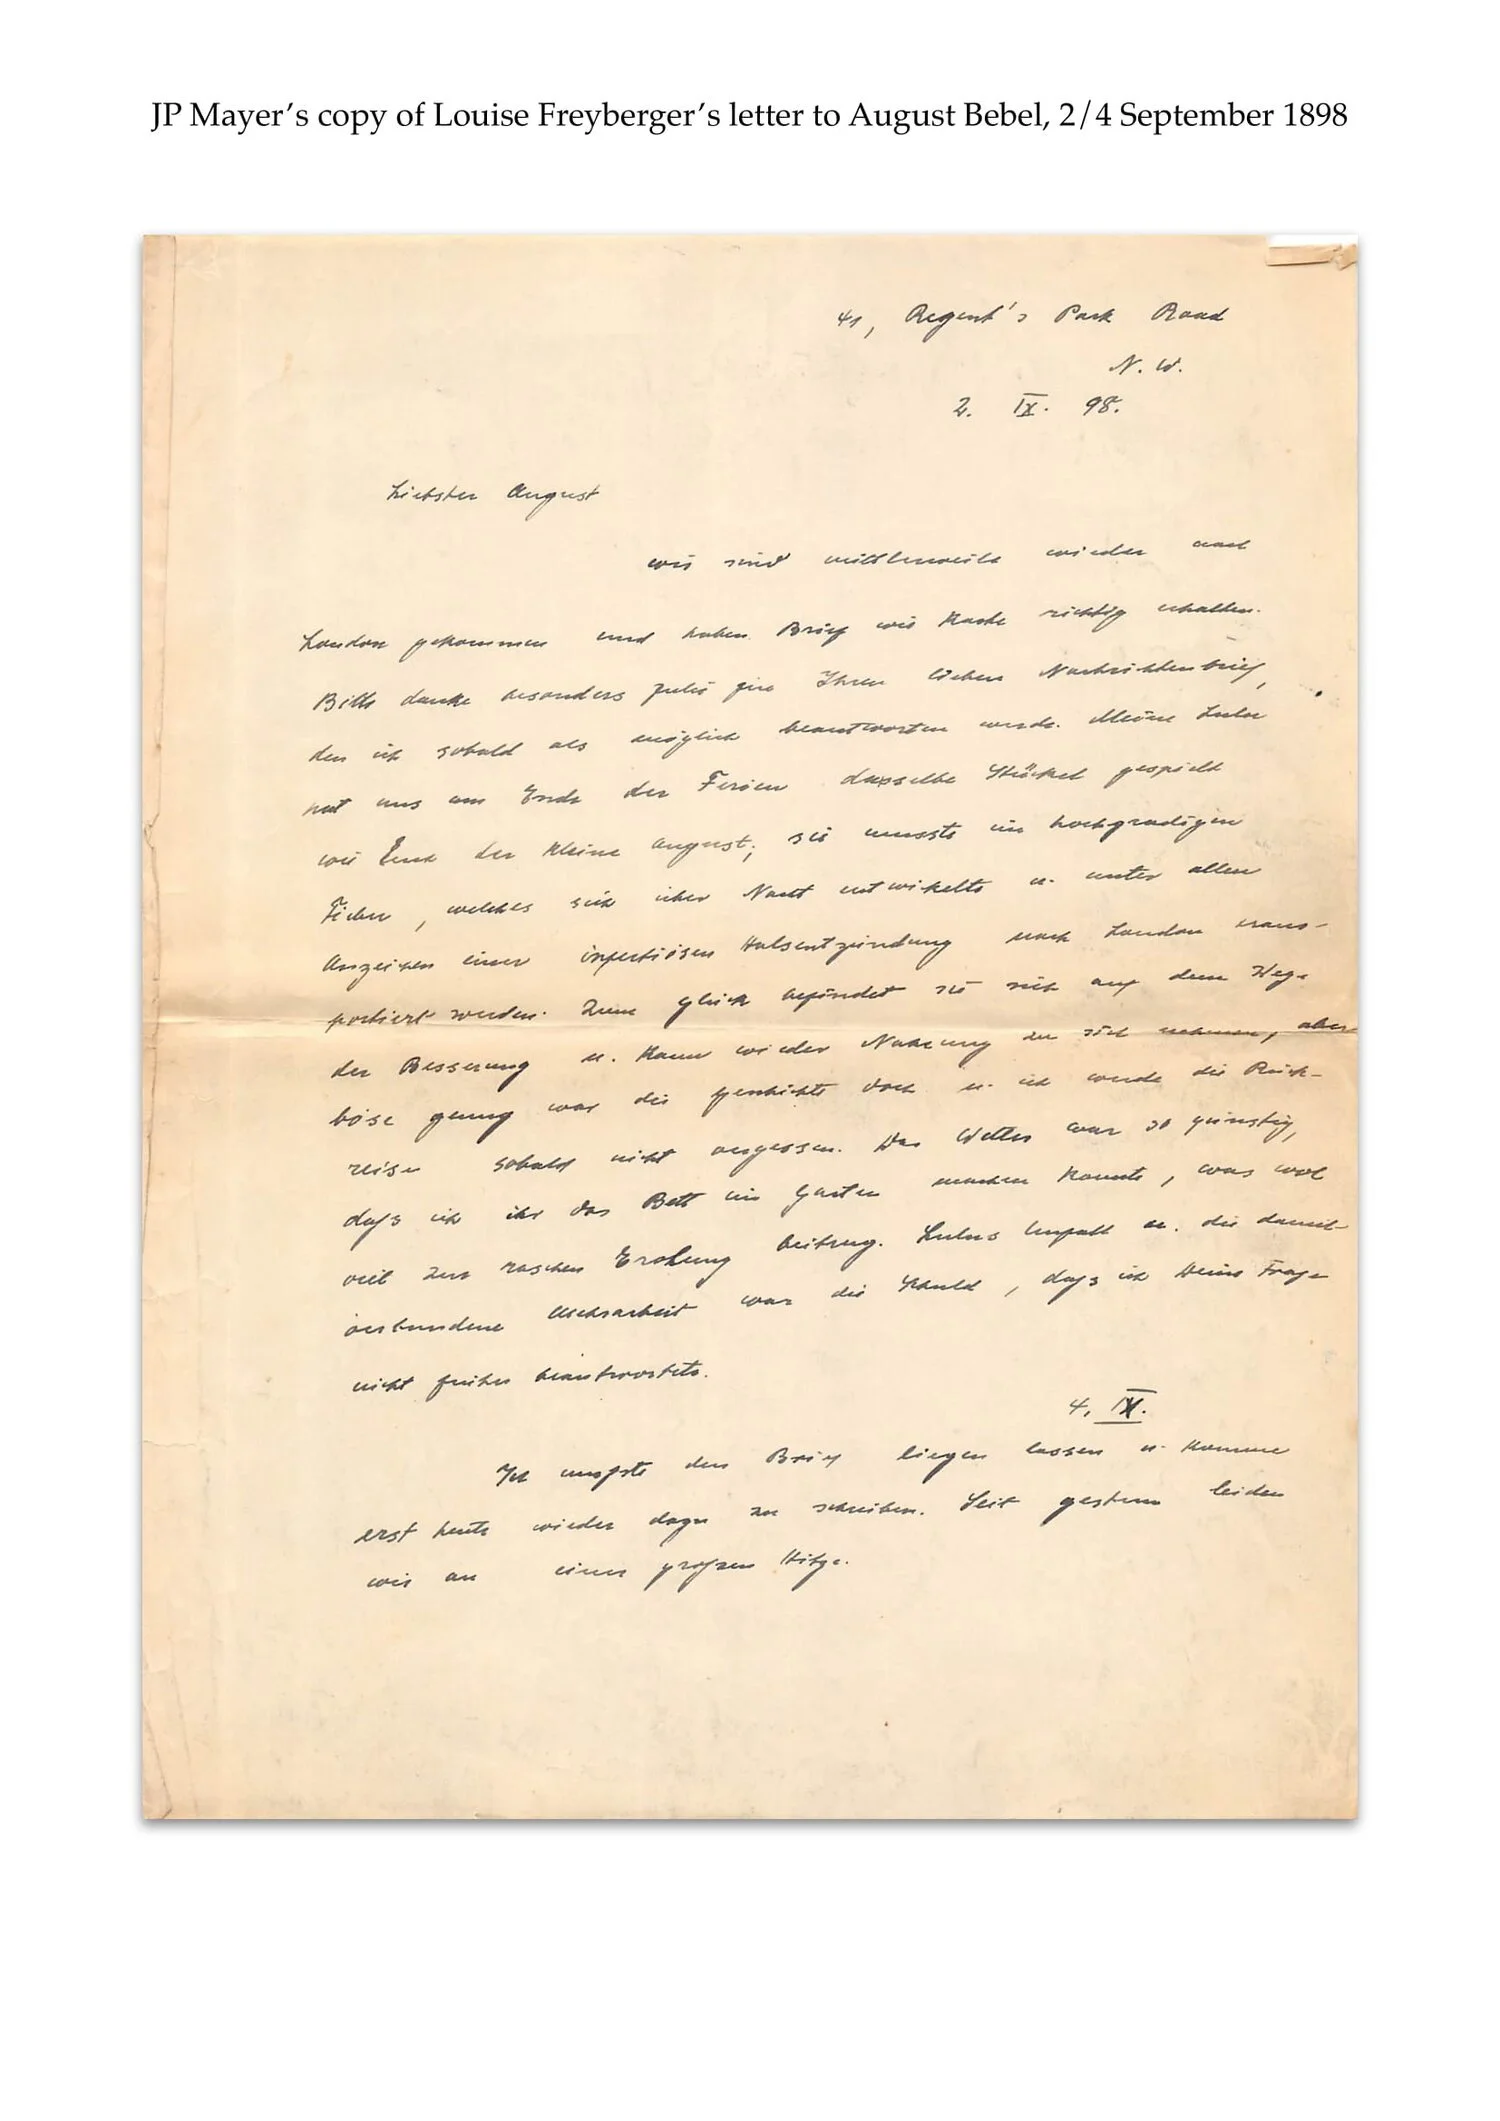 JP Mayer’s copy of Louise Freyberger’s letter to August Bebel, 2/4 September 1898
41, Regent's Park Road
N. W.
2. IX. 98.
Liebster August
wir sind mittlerweile wieder nach
London gekommen und haben Brief wie Karte richtig erhalten.
Bitte danke besonders Julie für Ihren lieben Nachrichtenbrief,
den ich sobald als möglich beantworten werde. Meine Lulu
hat uns am Ende der Ferien dasselbe Stückel gespielt
wie Euch der kleine August; sie musste im hochgradigen
Fieber, welches sich über Nacht entwikelte u. unter allen
Anzeichen einer infectiösen Halsentzündung nach London trans-
portiert werden. Zum Glück befindet sie sich auf dem Wege
der Besserung u. kann wieder Nahrung zu sich nehmen, aber
böse genug war die Geschichte doch u. ich werde die Rück-
reise sobald nicht vergessen. Das Wetter war so günstig,
dass ich ihr das Bett im Garten machen konnte, was wol
viel zur raschen Erholung beitrug. Lulus Unfall u. die damit
verbundene Mehrarbeit war die Schuld, dass ich Deine Frage
nicht früher beantwortete.
4. IX.
Ich musste den Brief liegen lassen u. komme
erst heute wieder dazu zu schreiben. Seit gestern leiden
wir an einer grossen Hitze.